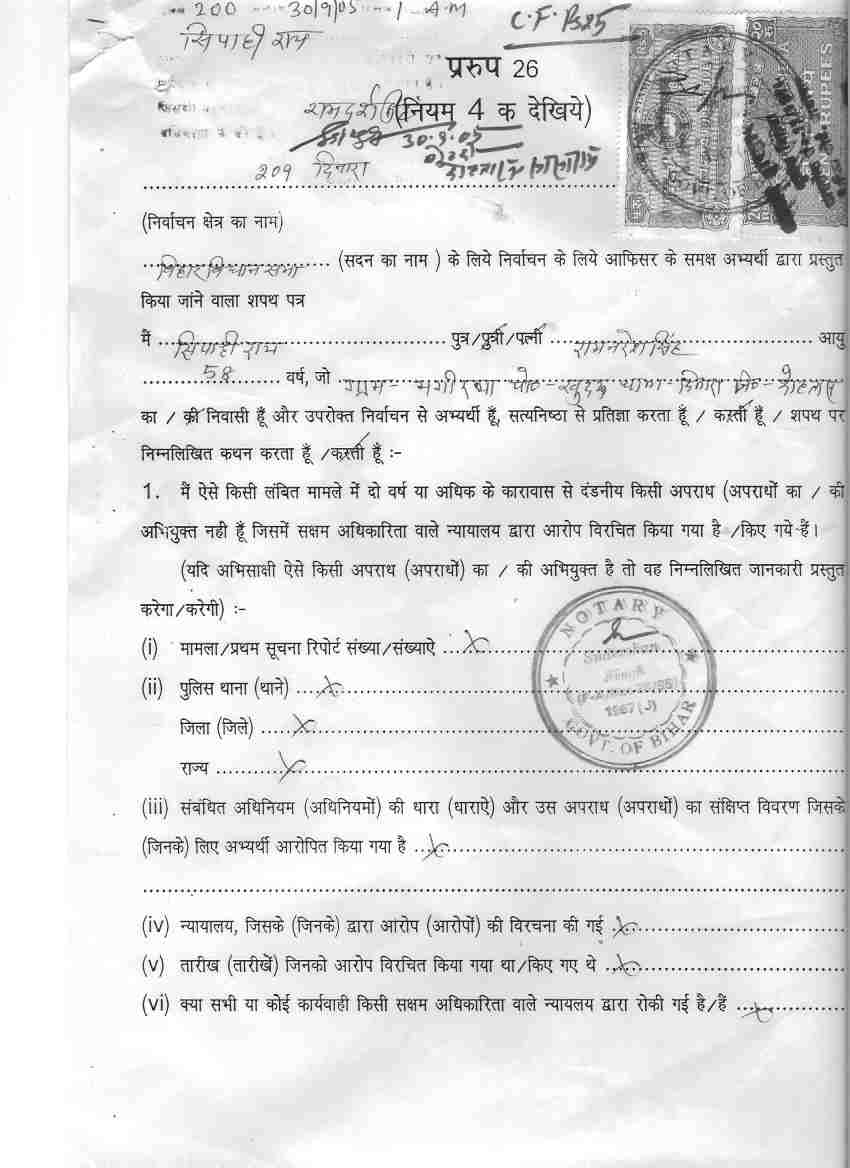 200 30/9/05 1 A.M
C.F. Rs 25
सिपाही राय
प्ररुप 26
(नियम 4 क देखिये)
30.9.05
209 दिनारा
(निर्वाचन क्षेत्र का नाम)
बिहार विधान सभा (सदन का नाम ) के लिये निर्वाचन के लिये आफिसर के समक्ष अभ्यर्थी द्वारा प्रस्तुत
किया जांने वाला शपथ पत्र
मैं सिपाही राय पुत्र/पुत्री/पत्नी रामनरेश सिंह आयु
58 वर्ष, जो ग्राम- पो०- थाना- दिनारा जि०- रोहतास
का / की निवासी हूँ और उपरोक्त निर्वाचन से अभ्यर्थी हूँ, सत्यनिष्ठा से प्रतिज्ञा करता हूँ / करती हूँ / शपथ पर
निम्नलिखित कथन करता हूँ /करती हूँ :-
1. मैं ऐसे किसी लंबित मामले में दो वर्ष या अधिक के कारावास से दंडनीय किसी अपराध (अपराधों का / की
अभियुक्त नही हूँ जिसमें सक्षम अधिकारिता वाले न्यायालय द्वारा आरोप विरचित किया गया है /किए गये हैं।
(यदि अभिसाक्षी ऐसे किसी अपराध (अपराधों) का / की अभियुक्त है तो वह निम्नलिखित जानकारी प्रस्तुत
करेगा/करेगी) :-
(i) मामला/प्रथम सूचना रिपोर्ट संख्या/संख्याऐ ... X
(ii) पुलिस थाना (थाने) ... X
जिला (जिले) ... X
राज्य ... X
NOTARY
1967 (J)
GOVT. OF BIHAR
(iii) संबंधित अधिनियम (अधिनियमों) की धारा (धाराऐ) और उस अपराध (अपराधों) का संक्षिप्त विवरण जिसके
(जिनके) लिए अभ्यर्थी आरोपित किया गया है ... X
(iv) न्यायालय, जिसके (जिनके) द्वारा आरोप (आरोपों) की विरचना की गई . X
(v) तारीख (तारीखें) जिनको आरोप विरचित किया गया था/किए गए थे .. X
(vi) क्या सभी या कोई कार्यवाही किसी सक्षम अधिकारिता वाले न्यायलय द्वारा रोकी गई है/हैं ... X